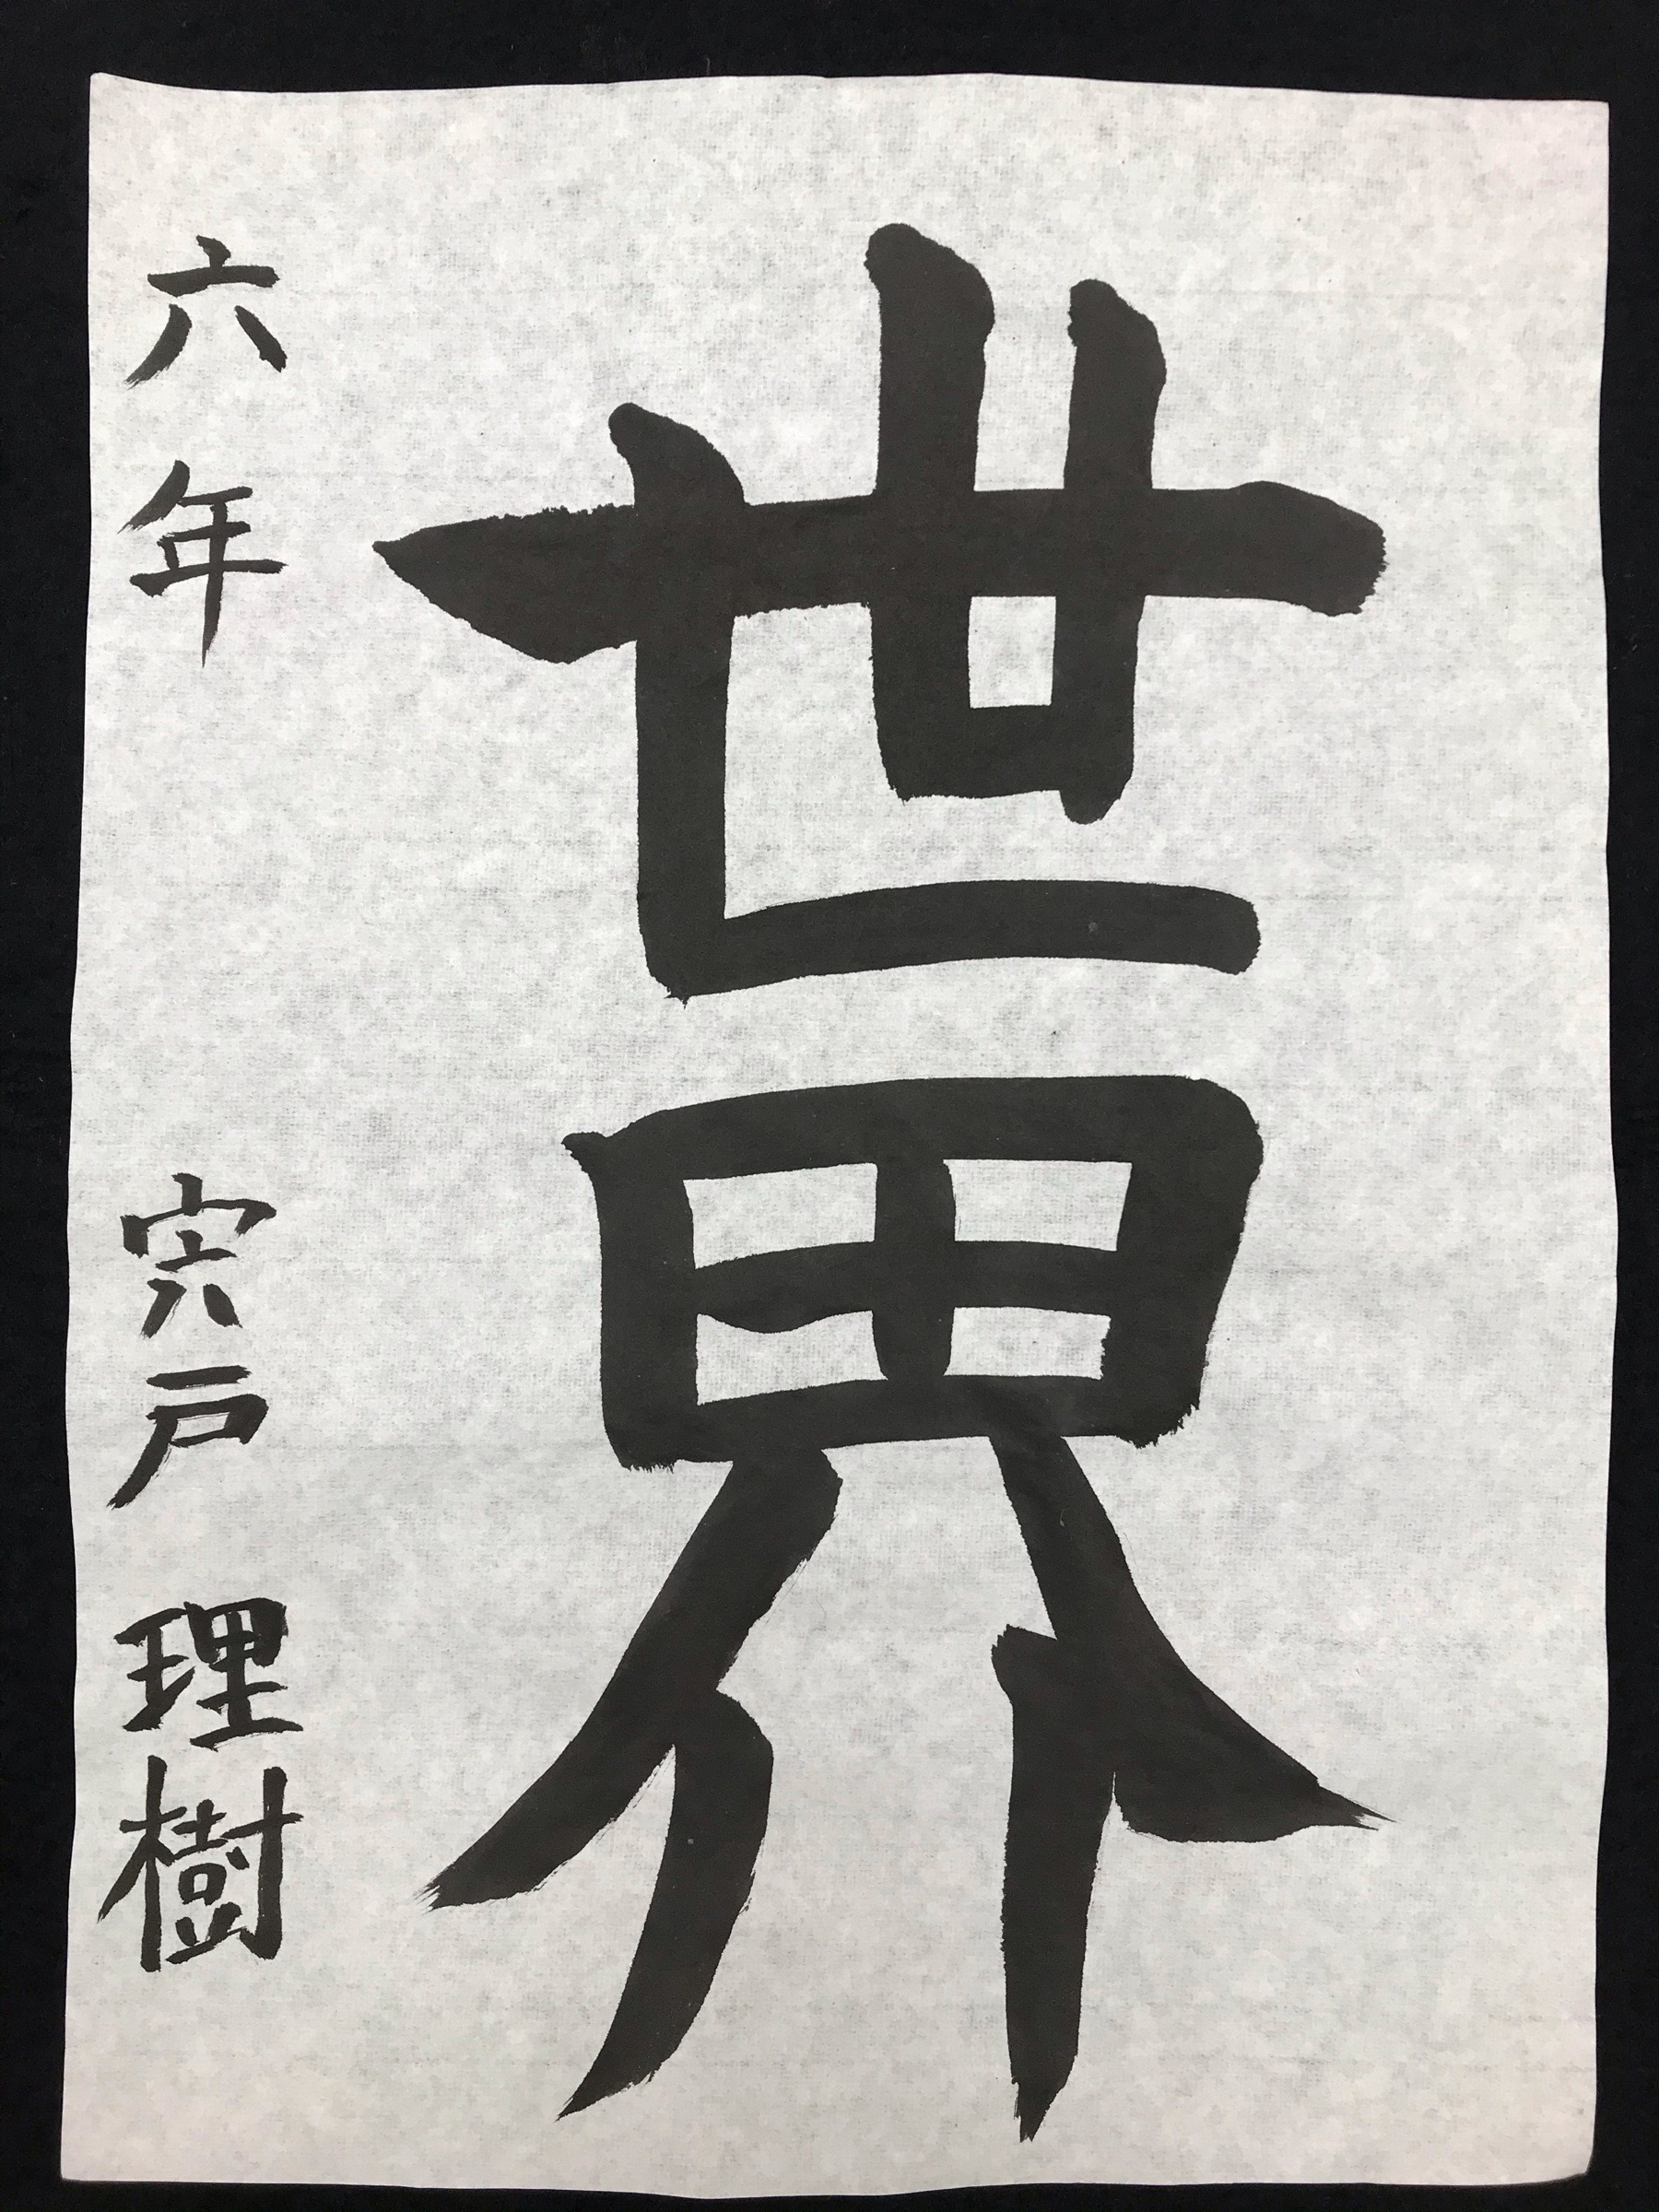 世界
六年 宍戸 理樹